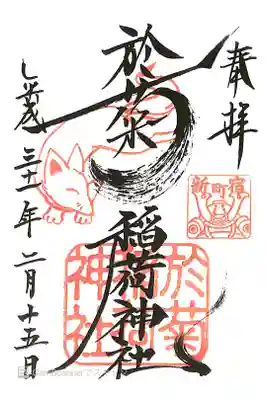 奉拝
新町宿
於菊稲荷神社
於菊
稲荷
神社
平成三十一年二月十五日